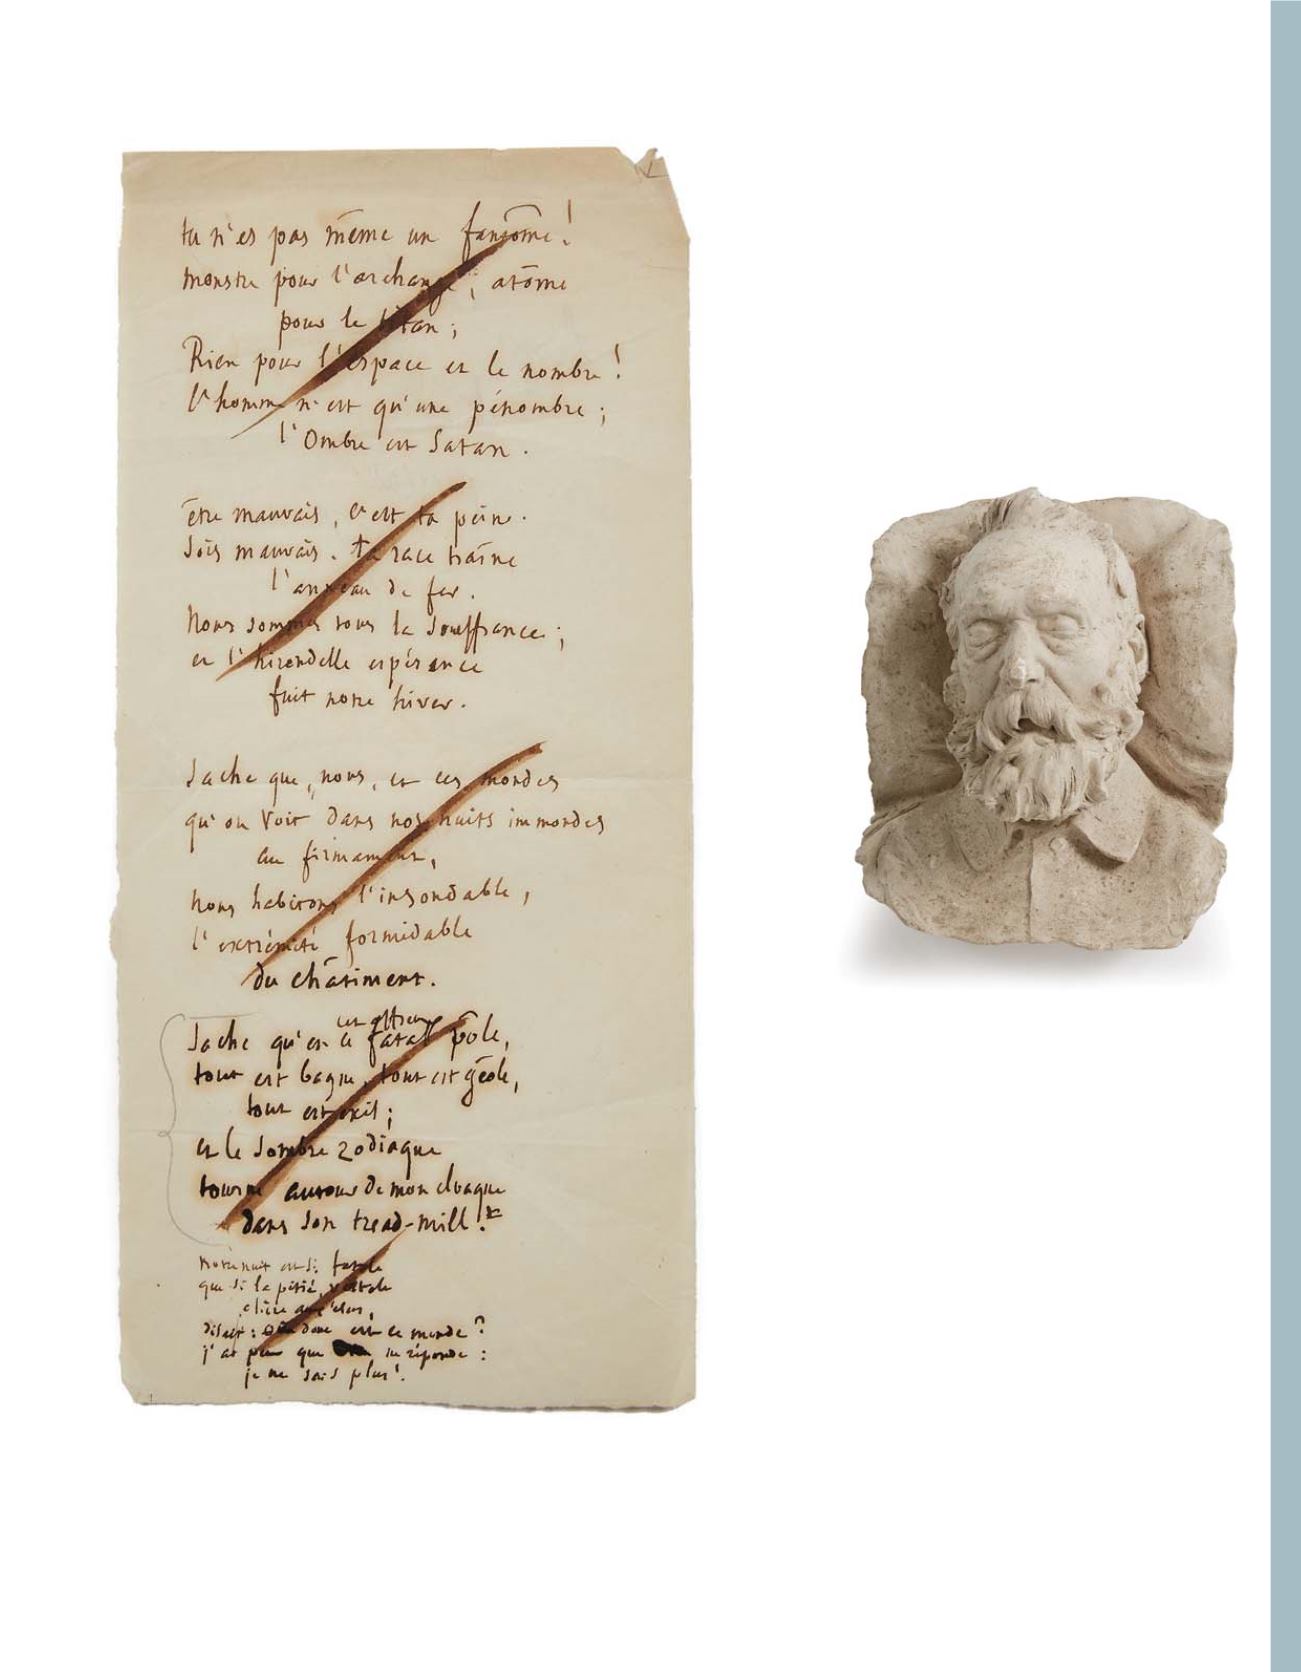 tu n'es pas même un fantôme !
monstre pour l'archange, atôme
pour le titan ;
Rien pour l'espace et le nombre !
l'homme n'est qu'une pénombre ;
l'Ombre est Satan.
être mauvais, c'est ta peine.
Sois mauvais. ta race traîne
l'anneau de fer.
Nous sommes tous la souffrance ;
et l'hirondelle espérance
fuit notre hiver.
Sache que, nous, et ces mondes
qu'on voit dans nos nuits immondes
au firmament,
nous habitons l'insondable,
l'extrémité formidable
du châtiment.
cet affreux
Sache qu'en ce fatal pôle,
tout est bagne, tout est geôle,
tout est exil ;
et le sombre zodiaque
tourne autour de mon cloaque
dans son tread-mill.
notre nuit est si fatale
que si la pitié, vestale
chère aux élus,
disait : donc est ce monde ?
j'ai peur que ne réponde :
je ne sais plus !